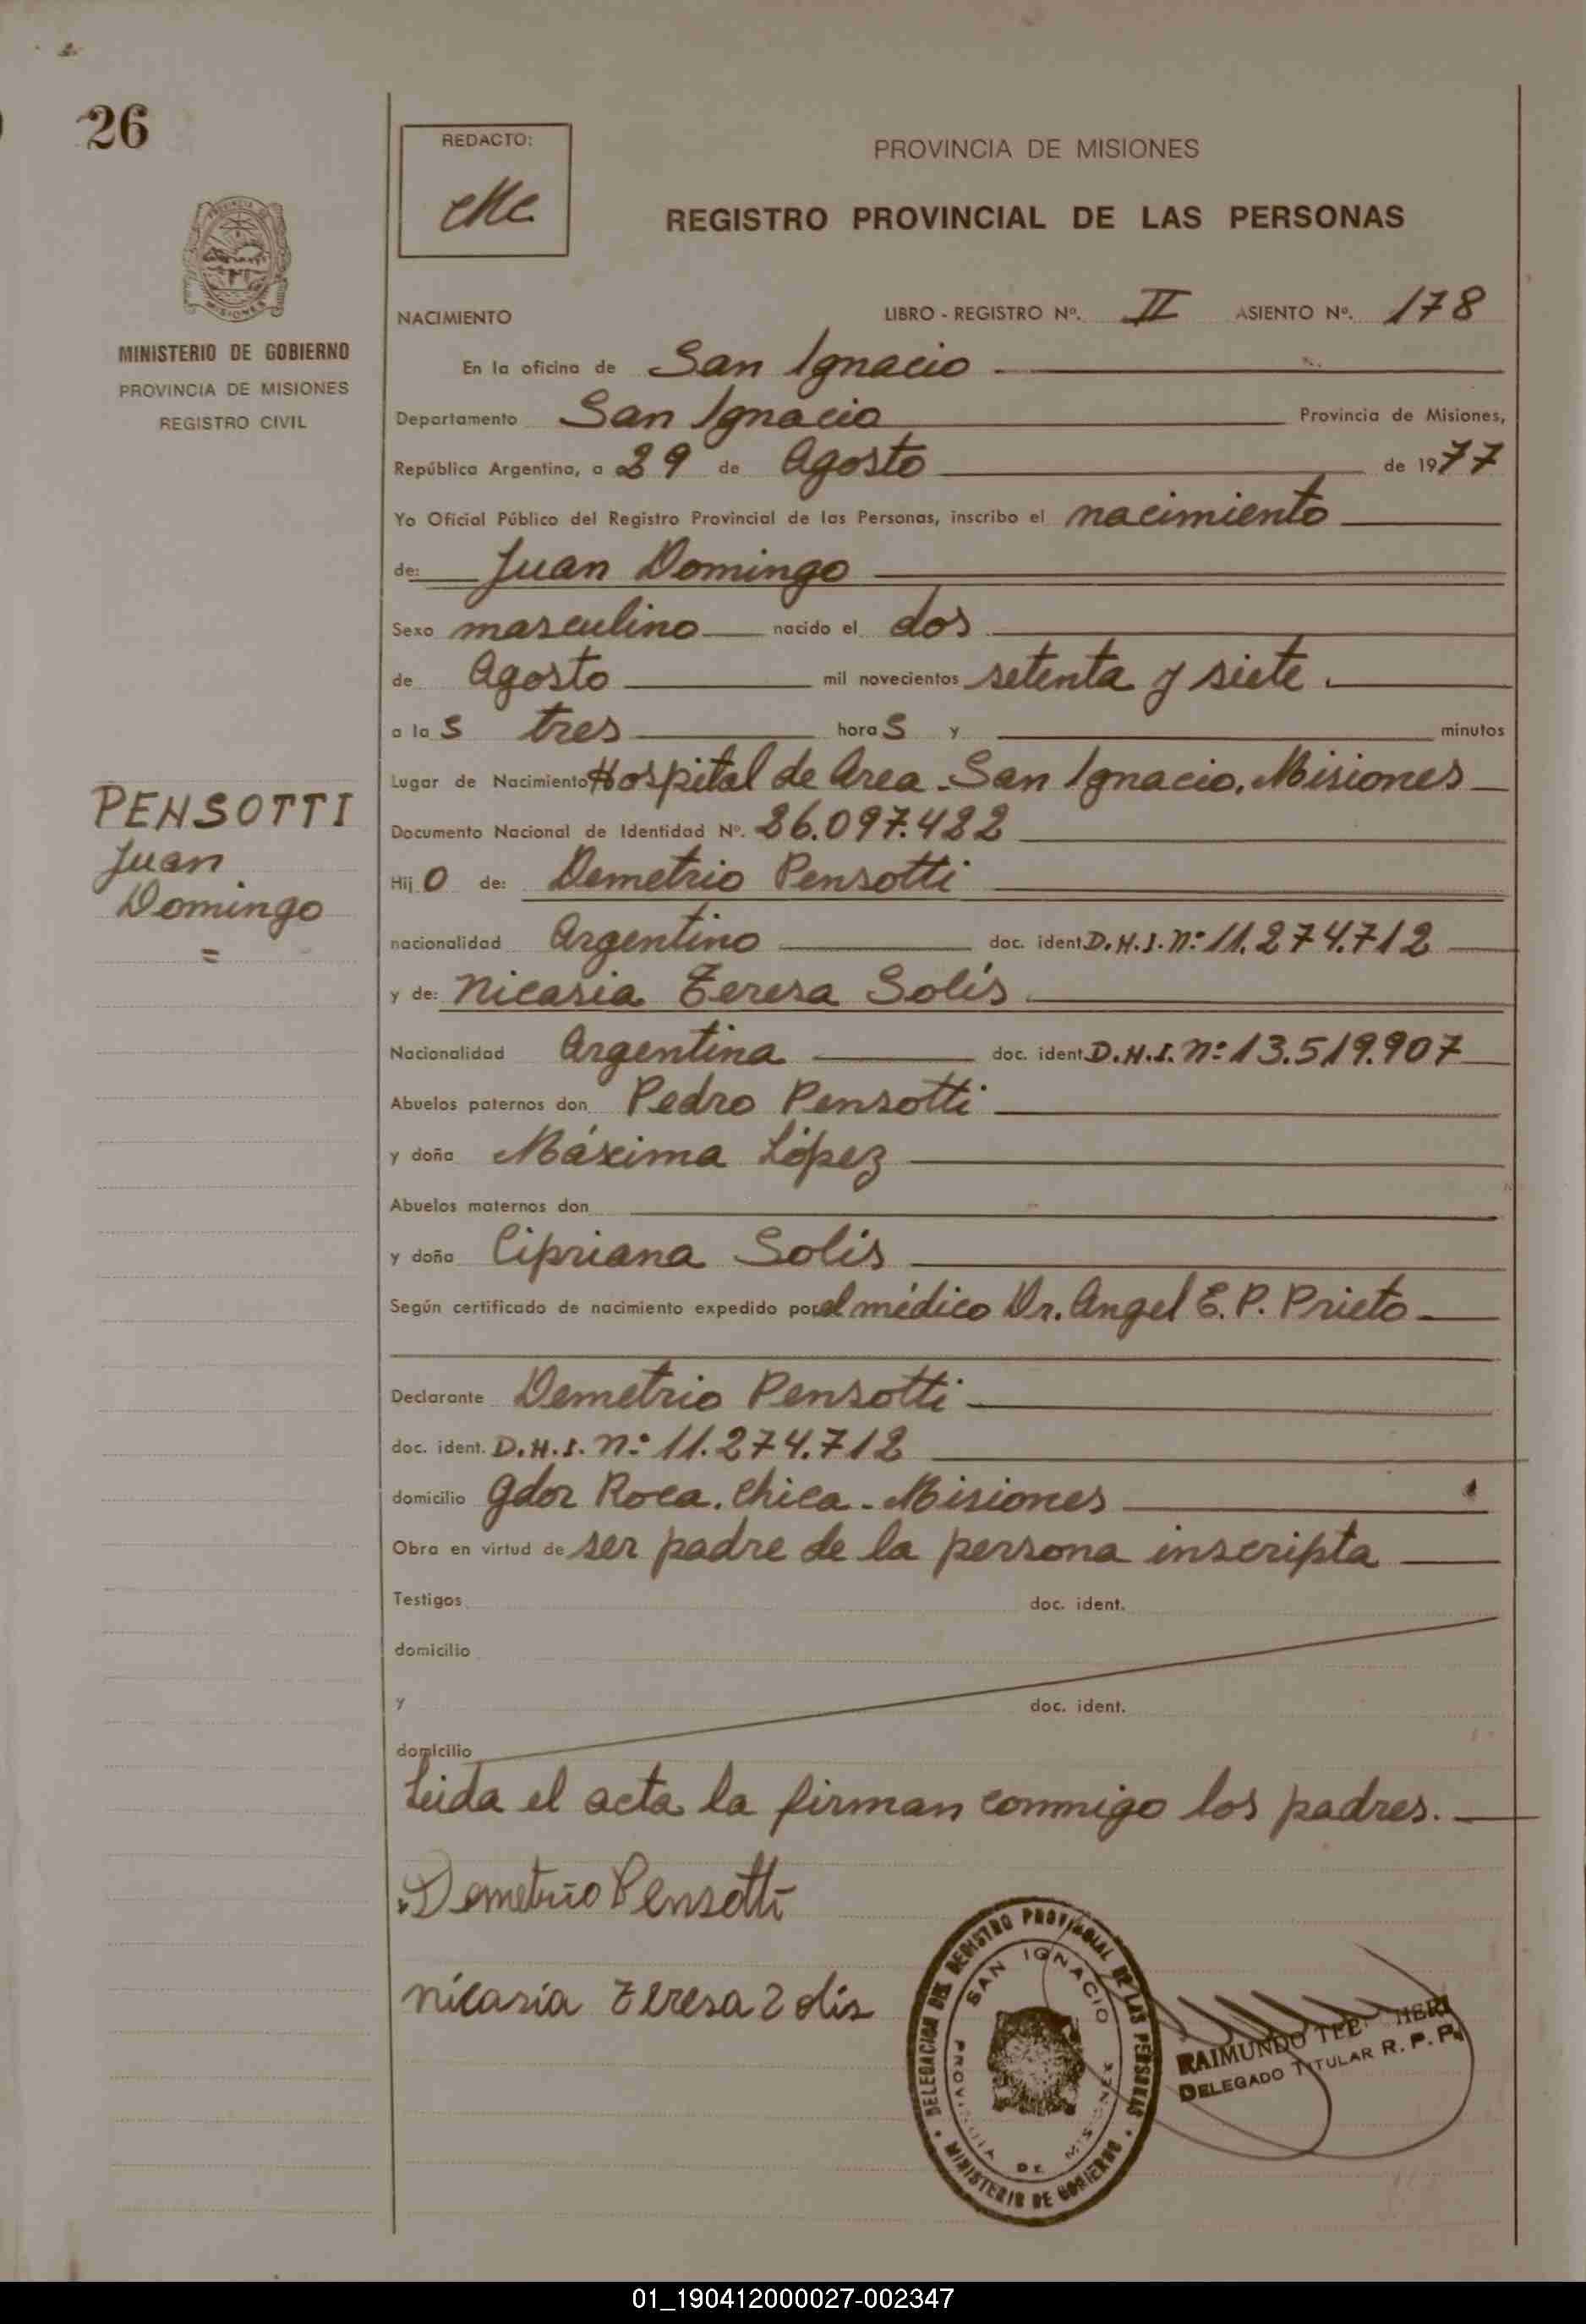 26
REDACTO:
PROVINCIA DE MISIONES
REGISTRO PROVINCIAL DE LAS PERSONAS
MINISTERIO DE GOBIERNO
PROVINCIA DE MISIONES
REGISTRO CIVIL
NACIMIENTO LIBRO - REGISTRO Nº. II ASIENTO Nº. 178
En la oficina de San Ignacio
Departamento San Ignacio Provincia de Misiones,
República Argentina, a 29 de Agosto de 1977
Yo Oficial Público del Registro Provincial de las Personas, inscribo el nacimiento
de: Juan Domingo
Sexo masculino nacido el dos
de Agosto mil novecientos setenta y siete.
a las tres horas y minutos
Lugar de Nacimiento Hospital de Area - San Ignacio, Misiones
PENSOTTI
Juan
Domingo
=
Documento Nacional de Identidad Nº. 26.097.422
Hijo de: Demetrio Pensotti
nacionalidad Argentino doc. ident. D.N.I. Nº 11.274.712
y de: Nicasia Teresa Solís
Nacionalidad Argentina doc. ident. D.N.I. Nº 13.519.907
Abuelos paternos don Pedro Pensotti
y doña Máxima López
Abuelos maternos don
y doña Cipriana Solís
Según certificado de nacimiento expedido por el médico Dr. Angel E. P. Prieto
Declarante Demetrio Pensotti
doc. ident. D.N.I. Nº 11.274.712
domicilio Gdor Roca. Chica - Misiones
Obra en virtud de ser padre de la persona inscripta
Testigos doc. ident.
domicilio
y doc. ident.
domicilio
Leida el acta la firman conmigo los padres.
Demetrio Pensotti
nicasia Teresa Solis
DELEGACION DEL REGISTRO PROVINCIAL DE LAS PERSONAS
SAN IGNACIO
PROVINCIA DE MISIONES
MINISTERIO DE GOBIERNO
RAIMUNDO
DELEGADO TITULAR R. P. P.
01_190412000027-002347